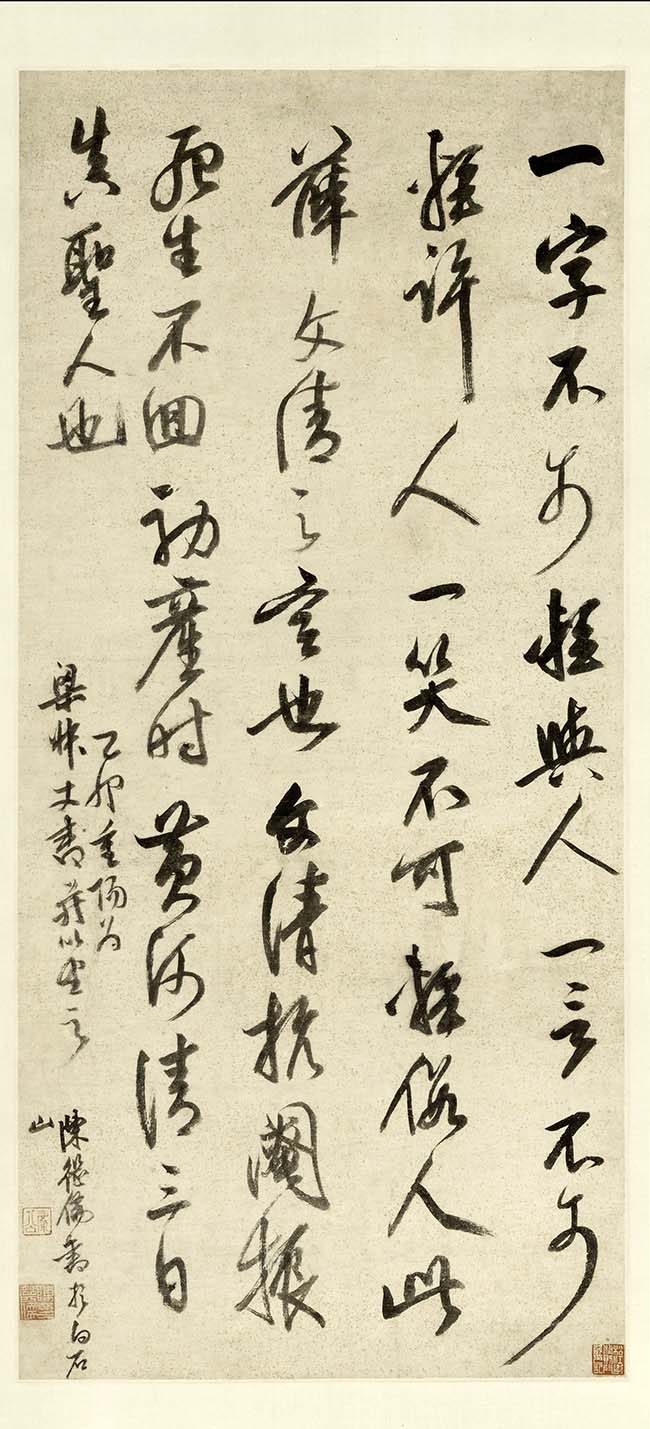 一字不可輕與人一言不可
輕許人一笑不可輕假人此
薛文清之言也文清抗閹振
死生不回初產時黃河清三日
真聖人也
乙卯重陽為
梁士書以之
陳繼儒書於白石
山